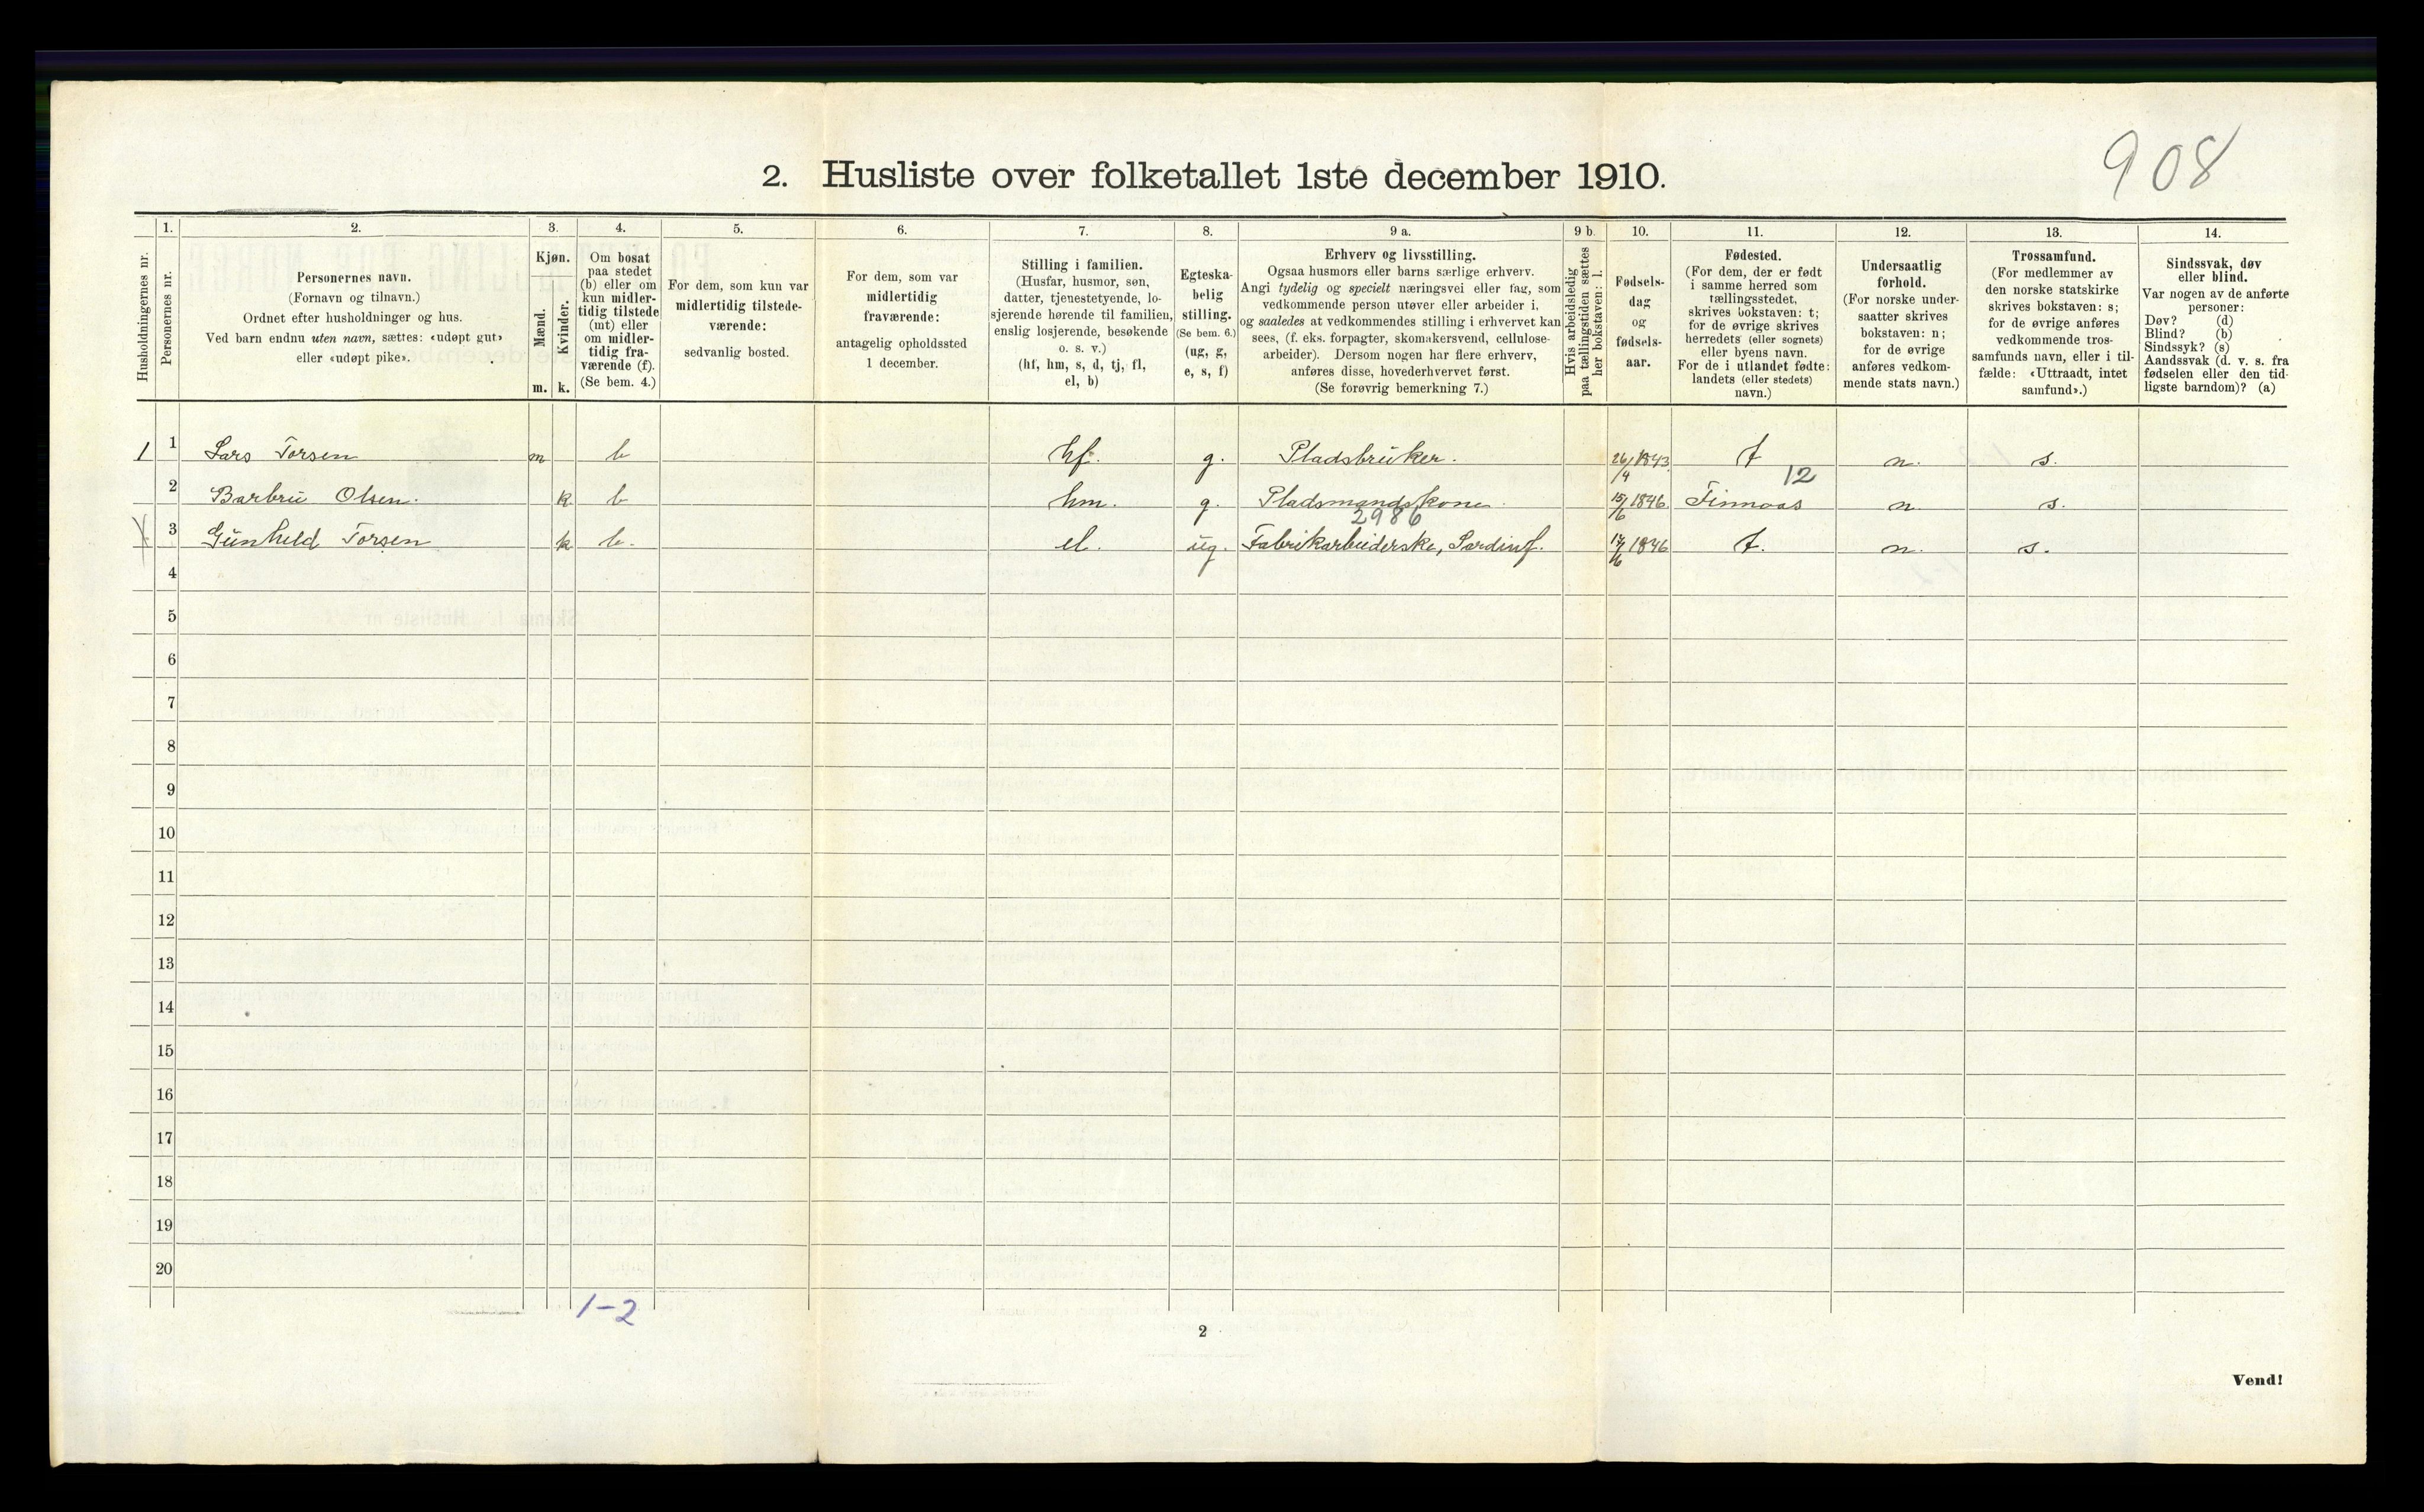 908
2. Husliste over folketallet 1ste december 1910.
Husholdningernes nr.
1.
Personernes nr.
2.
Personernes navn.
(Fornavn og tilnavn.)
Ordnet efter husholdninger og hus.
Ved barn endnu uten navn, sættes: «udøpt gut»
eller «udøpt pike».
3.
Kjøn.
Mænd.
m.
Kvinder.
k.
4.
Om bosat
paa stedet
(b) eller om
kun midler-
tidig tilstede
(mt) eller
om midler-
tidig fra-
værende (f).
(Se bem. 4.)
5.
For dem, som kun var
midlertidig tilstede-
værende:
sedvanlig bosted.
6.
For dem, som var
midlertidig
fraværende:
antagelig opholdssted
1 december.
7.
Stilling i familien.
(Husfar, husmor, søn,
datter, tjenestetyende, lo-
sjerende hørende til familien,
enslig losjerende, besøkende
o. s. v.)
(hf, hm, s, d, tj, fl,
el, b)
8.
Egteska-
belig
stilling.
(Se bem. 6.)
(ug, g,
e, s, f)
9 a.
Erhverv og livsstilling.
Ogsaa husmors eller barns særlige erhverv.
Angi tydelig og specielt næringsvei eller fag, som
vedkommende person utøver eller arbeider i,
og saaledes at vedkommendes stilling i erhvervet kan
sees, (f. eks. forpagter, skomakersvend, cellulose-
arbeider). Dersom nogen har flere erhverv,
anføres disse, hovederhvervet først.
(Se forøvrig bemerkning 7.)
9 b.
Hvis arbeidsledig
paa tællingstiden sættes
her bokstaven: l.
10.
Fødsels-
dag
og
fødsels-
aar.
11.
Fødested.
(For dem, der er født
i samme herred som
tællingsstedet,
skrives bokstaven: t;
for de øvrige skrives
herredets (eller sognets)
eller byens navn.
For de i utlandet fødte:
landets (eller stedets)
navn.)
12.
Undersaatlig
forhold.
(For norske under-
saatter skrives
bokstaven: n;
for de øvrige
anføres vedkom-
mende stats navn.)
13.
Trossamfund.
(For medlemmer av
den norske statskirke
skrives bokstaven: s;
for de øvrige anføres
vedkommende tros-
samfunds navn, eller i til-
fælde: «Uttraadt, intet
samfund».)
14.
Sindssvak, døv
eller blind.
Var nogen av de anførte
personer:
Døv? (d)
Blind? (b)
Sindssyk? (s)
Aandssvak (d. v. s. fra
fødselen eller den tid-
ligste barndom)? (a)
1 1 Lars Torsen m b hf. g. Pladsbruker. 26/4 1843 t n. s.
12
2 Barbru Olsen. k b hm. g. Pladsmandskone 15/6 1846. Finnaas n s.
2986
3 Gunhild Torsen k b. el. ug. Fabrikarbeiderske, Sardinf. 1846 t. n. s.
4
5
6
7
8
9
10
11
12
13
14
15
16
17
18
19
20
1-2
2
Vend!